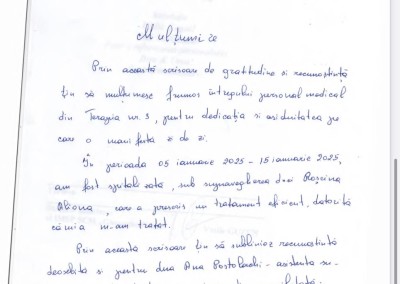 Mulțumire
Prin această scrisoare de gratitudine si recunostintă
țin să mulțumesc frumos întregului personal medical
din Terapia nr. 3, pentru dedicația si asiduitatea pe
care o manifestă zi de zi.
În perioada 05 ianuarie 2025 - 15 ianuarie 2025,
am fost spitalizata, sub supravegherea dnei Roșcina
Aliona, care a prescris un tratament eficient, datorită
căruia m-am tratat.
Prin această scrisoare țin să subliniez recunostintă
deosebită si pentru dna Ana Postolachi - asistenta su-